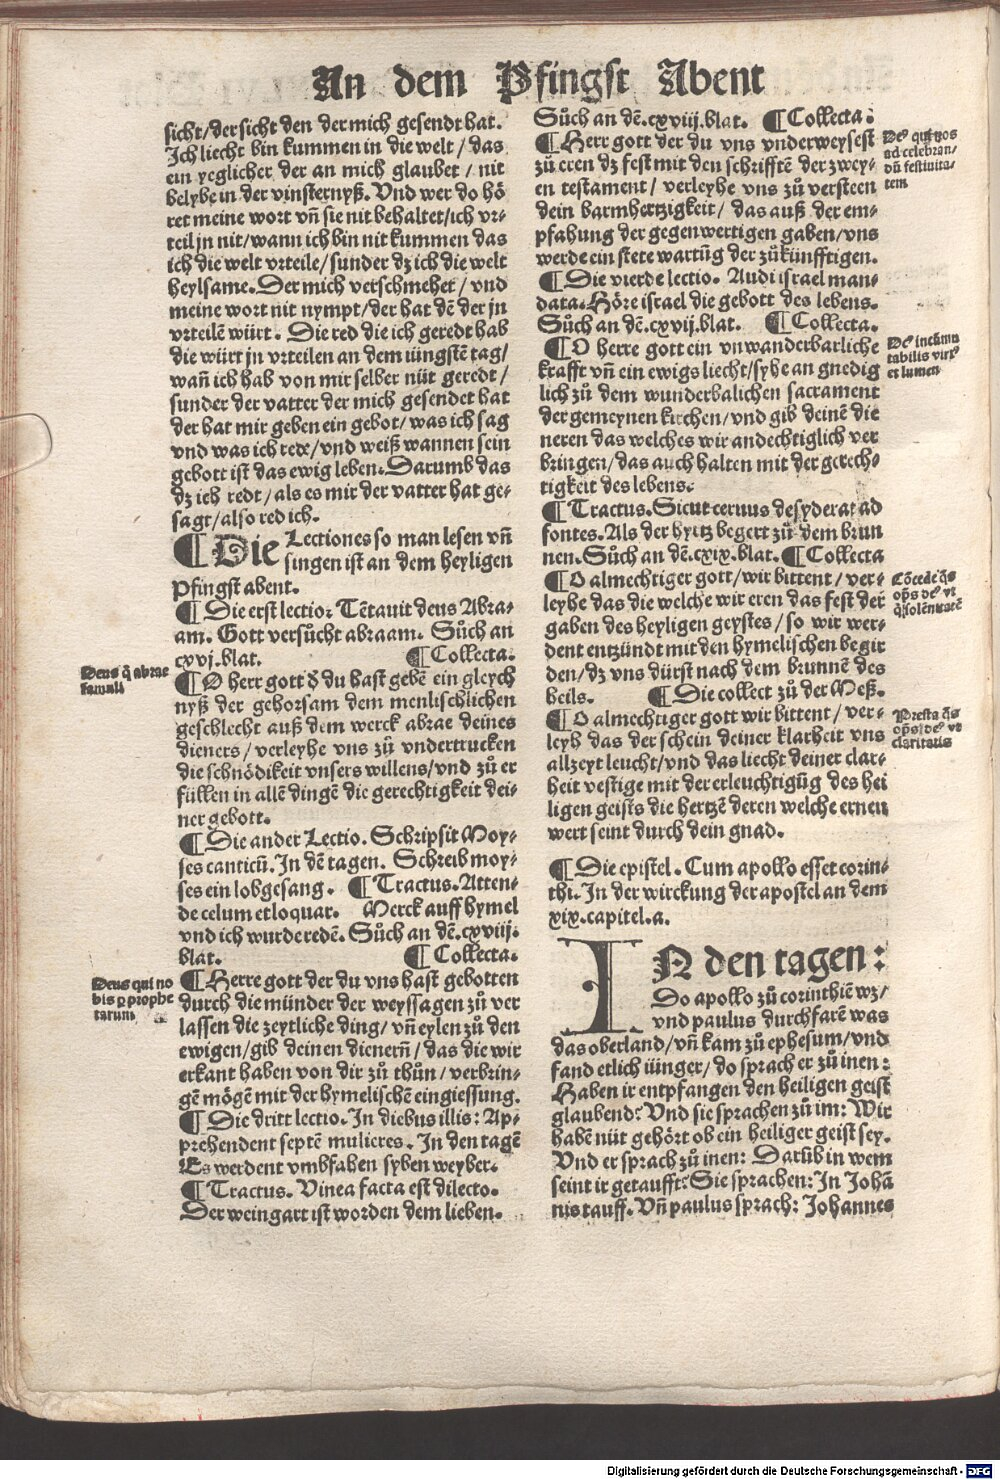 An dem Pfingst Abent
sicht/der sicht den der mich gesendt hat.
Ich liecht bin kummen in die welt/das
ein yeglicher der an mich glaubet/nit
belybe in der vinsternyß. Vnd wer do hö
ret meine wort vñ sie nit behaltet/ich vr⸗
teil jn nit/wann ich bin nit kummen das
ich die welt vrteile/sunder dz ich die welt
heylsame. Der mich verschmehet/vnd
meine wort nit nympt/der hat dē der jn
vrteilē würt. Die red die ich geredt hab
die würt jn vrteilen an dem iüngstē tag/
wañ ich hab von mir selber nüt geredt/
sunder der vatter der mich gesendet hat
der hat mir geben ein gebot/was ich sag
vnd was ich rede/vnd weiß wannen sein
gebott ist das ewig leben. Darumb das
dz ich redt/als es mir der vatter hat ge⸗
sagt/also red ich.
¶ Die Lectiones so man lesen vñ
singen ist an dem heyligen
Pfingst abent.
¶ Die erst lectio: Tētauit deus Abra⸗
am. Gott versůcht abraam. Sůch an
cxvj.blat. ¶ Collecta.
Deus q̄ abrae
famuli
¶ O herr gott d̕ du hast gebē ein gleych
nyß der gehorsam dem menslichlichen
geschlecht auß dem werck abrae deines
dieners/verleyhe vns zů vndertrucken
die schnödikeit vnsers willens/vnd zů er
füllen in allē dingē die gerechtigkeit dei⸗
ner gebott.
¶ Die ander Lectio. Schripsit Moy⸗
ses canticū. In dē tagen. Schreib moy⸗
ses ein lobgesang. ¶ Tractus. Atten⸗
de celum et loquar. Merck auff hymel
vnd ich wurde redē. Sůch an dē.cxviij.
blat. ¶ Collecta.
Deus qui no
bis ꝑ prophe
tarum
¶ Herre gott der du vns hast gebotten
durch die münder der weyssagen zů ver
lassen die zeytliche ding/vñ eylen zů den
ewigen/gib deinen dienerñ/das die wir
erkant haben von dir zů thůn/verbrin⸗
gē mögē mit der hymelischē eingiessung.
¶ Die dritt lectio. In diebus illis: Ap⸗
prehendent septē mulieres. In den tagē
Es werdent vmbfahen syben weyber.
¶ Tractus. Vinea facta est dilecto.
Der weingart ist worden dem lieben.
Sůch an dē.cxviij.blat. ¶ Collecta:
De9 qui nos
ad celebran/
dū festiuita/
tem
¶ Herr gott der du vns vnderweysest
zů eren dz fest mit den schrifftē der zwey⸗
en testament/verleyhe vns zů versteen
dein barmhertzigkeit/das auß der em⸗
pfahung der gegenwertigen gaben/vns
werde ein stete wartūg der zůkünfftigen.
¶ Die vierde lectio. Audi israel man⸗
data. Höre israel die gebott des lebens.
Sůch an dē.cxvij.blat. ¶ Collecta.
¶ O herre gott ein vnwanderbarliche
krafft vñ ein ewigs liecht/syhe an gnedig
lich zů dem wunderbalichen sacrament
der gemeynen kirchen/vnd gib deinē die
neren das welches wir andechtiglich ver
bringen/das auch halten mit der gerech⸗
tigkeit des lebens.
¶ Tractus. Sicut ceruus desyderat ad
fontes. Als der hyrtz begert zů dem brun
nen. Sůch an dē.cxix.blat. ¶ Collecta
Cōcede q̄s
¶ O almechtiger gott/wir bittent/ver⸗
leyhe das die welche wir eren das fest der
gaben des heyligen geystes/so wir wer⸗
dent entzündt mit den hymelischen begir
den/dz vns dürst nach dem brunnē des
heils. ¶ Die collect zů der Meß.
Presta q̄s
claritatis
¶ O almechtiger gott wir bittent/ver⸗
leyh das der schein deiner klarheit vns
allzeyt leucht/vnd das liecht deiner clar⸗
heit vestige mit der erleuchtigūg des hei
ligen geists die hertzē deren welche erneu
wert seint durch dein gnad.
¶ Die epistel. Cum apollo esset corin⸗
thi. In der wirckung der apostel an dem
xix.capitel.a.
IN den tagen:
Do apollo zů corinthiē wz/
vnd paulus durchfarē was
das oberland/vñ kam zů ephesum/vnd
fand etlich iünger/do sprach er zů inen:
Haben ir entpfangen den heiligen geist
glaubend? Vnd sie sprachen zů im: Wir
habē nüt gehört ob ein heiliger geist sey.
Vnd er sprach zů inen: Darūb in wem
seint ir getaufft? Sie sprachen: In Johā
nis tauff. Vñ paulus sprach: Johannes
Digitalisierung gefördert durch die Deutsche Forschungsgemeinschaft - DFG